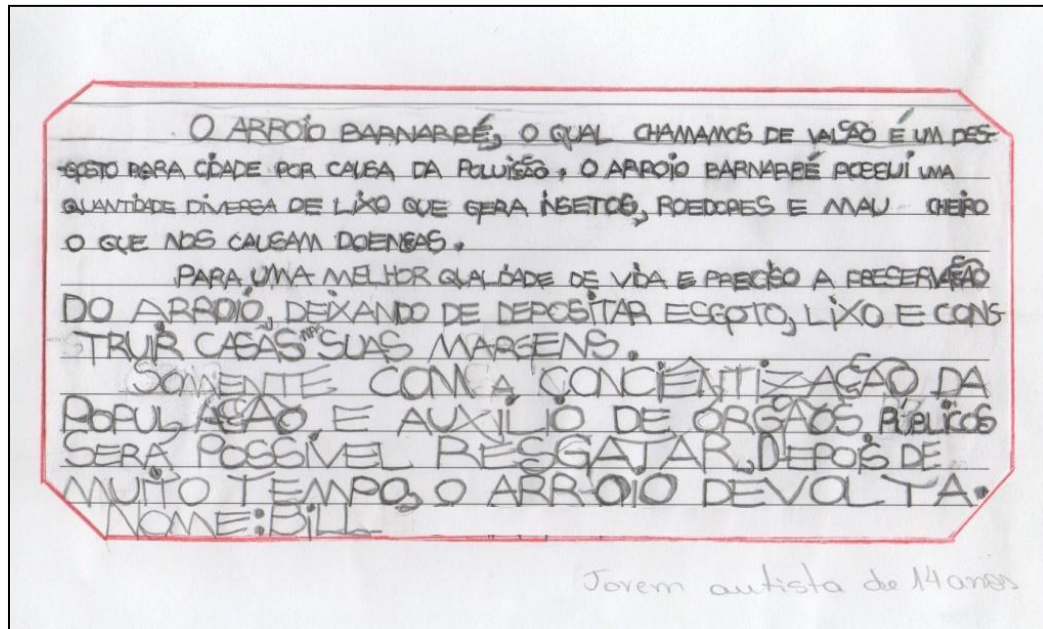 O ARROIO BARNARBÉ, O QUAL CHAMAMOS DE VALSÃO É UM DES-
GOSTO PARA CIDADE POR CAUSA DA POLUISÃO. O ARROIO BARNARBÉ POSSUI UMA
QUANTIDADE DIVERSA DE LIXO QUE GERA INSETOS, ROEDORES E MAU CHEIRO
O QUE NOS CAUSAM DOENSAS.
PARA UMA MELHOR QUALIDADE DE VIDA E PRECISO A PRESERVAÇÃO
DO ARROIO, DEIXANDO DE DEPOSITAR ESGOTO, LIXO E CONS-
TRUIR CASAS NAS SUAS MARGENS.
SOMENTE COM A CONCIENTIZAÇÃO DA
POPULAÇÃO E AUXILIO DE ÓRGÃOS PÚBLICOS
SERÁ POSSÍVEL RESGATAR, DEPOIS DE
MUITO TEMPO, O ARROIO DEVOLTA.
NOME: BILL
Jovem autista de 14 anos